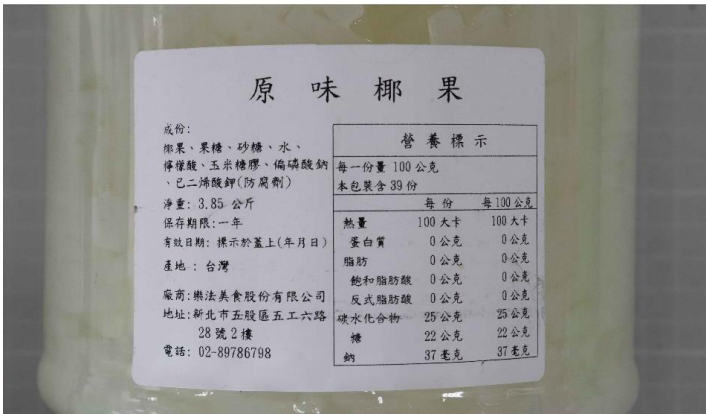 原味椰果
成份:
椰果、果糖、砂糖、水、
檸檬酸、玉米糖膠、偏磷酸鈉
、已二烯酸鉀(防腐劑)
淨重: 3.85 公斤
保存期限:一年
有效日期: 標示於蓋上(年月日)
產地 : 台灣
廠商:樂法美食股份有限公司
地址:新北市五股區五工六路
28號2樓
電話: 02-89786798
營養標示
每一份量 100 公克
本包裝含 39 份
每 份 每 100 公克
熱量 100 大卡 100 大卡
蛋白質 0 公克 0 公克
脂肪 0 公克 0 公克
飽和脂肪酸 0 公克 0 公克
反式脂肪酸 0 公克 0 公克
碳水化合物 25 公克 25 公克
糖 22 公克 22 公克
鈉 37 毫克 37 毫克